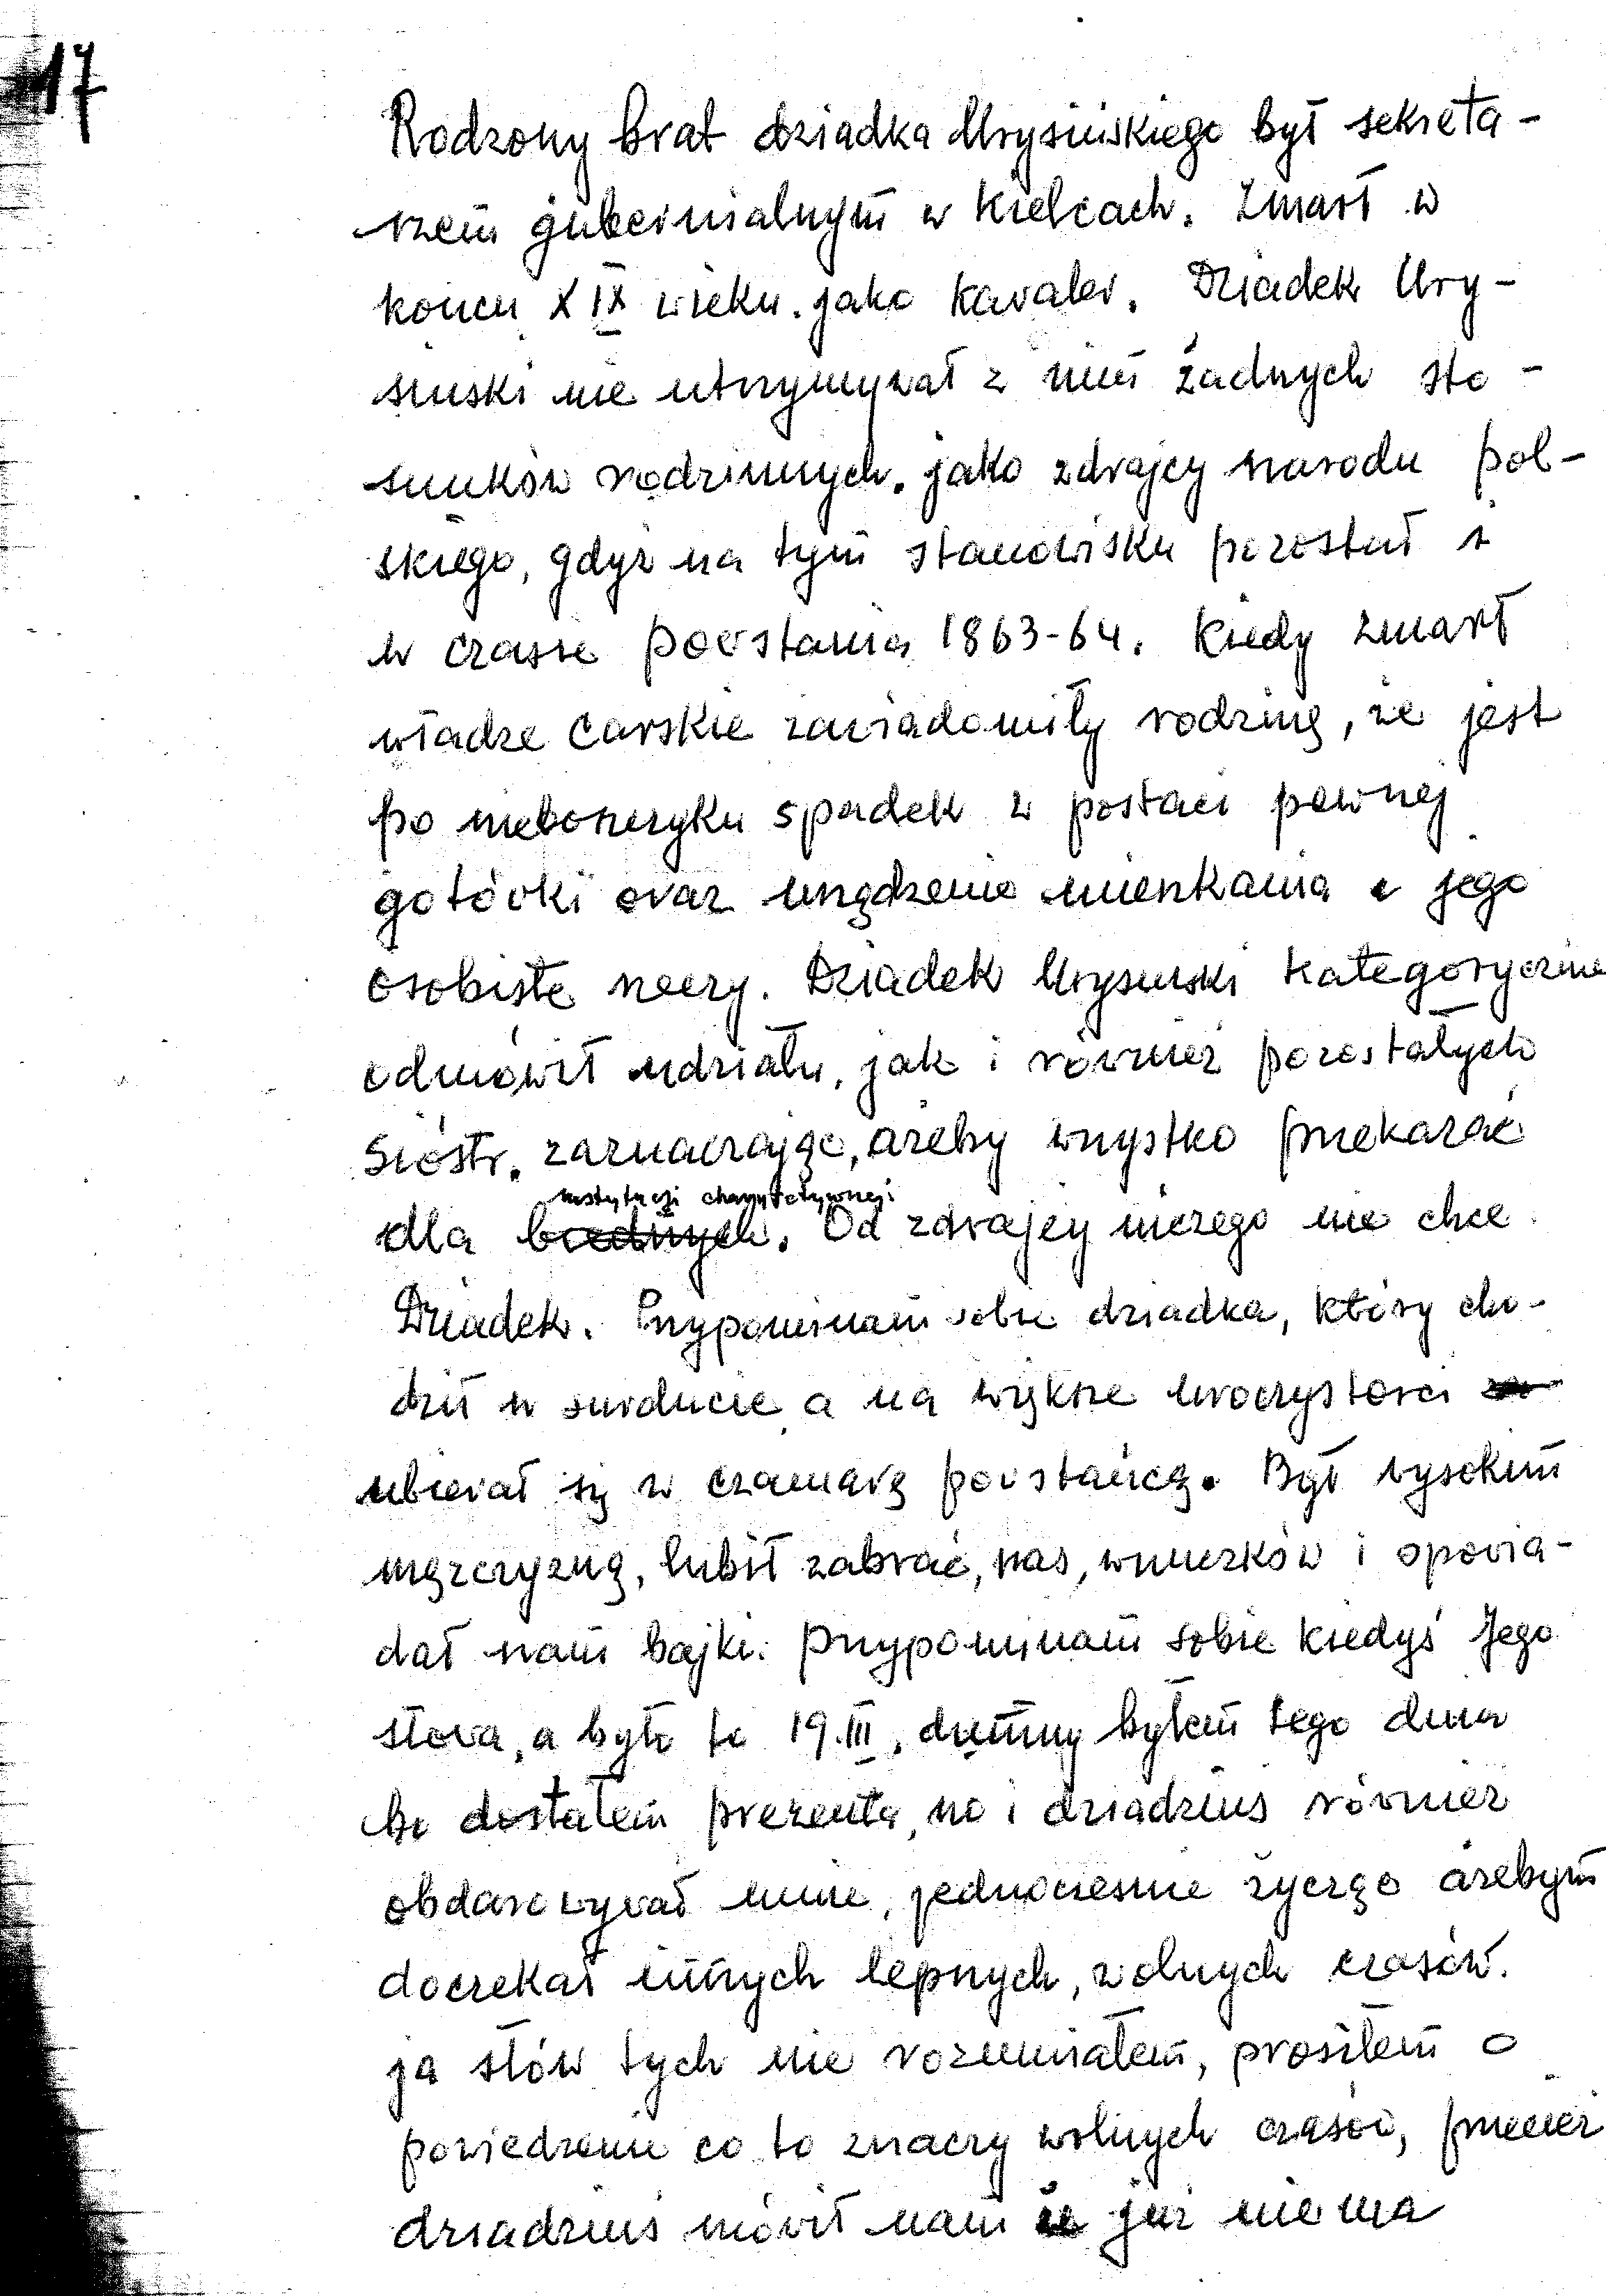 17
Rodzony brat dziadka Urysińskiego był sekreta-
rzem gubernialnym w Kielcach. Zmarł w
końcu XIX wieku. jako kawaler. Dziadek Ury-
sinski nie utrzymywał z nim żadnych sto-
sunków rodzinnych. jako zdrajcy narodu pol-
skiego, gdyż na tym stanowisku pozostał i
w czasie powstania 1863-64. Kiedy zmarł
władze carskie zawiadomiły rodzinę, że jest
po nieboszczyku spadek w postaci pewnej
gotówki oraz urządzenie mieszkania i jego
osobiste rzeczy. Dziadek Urysinski kategorycznie
odmówił udziału, jak i również pozostałych
sióstr. zaznaczając, ażeby wszystko przekazać
instytucji charytatywnej
dla biednych. Od zdrajcy niczego nie chce
Dziadek. Przypominam sobie dziadka, który cho-
dził w surducie a na większe uroczystości
ubierał się w czamarę powstańczą. Był wysokim
mężczyzną, lubił zabrać, nas, wnuczków i opowia-
dał nam bajki. Przypominam sobie kiedyś Jego
słowa, a było to 19.III, dumny byłem tego dnia
bo dostałem prezenta, no i dziadziuś również
obdarowywał mnie, jednocześnie życząc ażebym
doczekał innych lepszych, wolnych czasów.
ja słów tych nie rozumiałem, prosiłem o
powiedzenie co to znaczy wolnych czasów, przecież
dziadziuś mówił nam że już nie ma